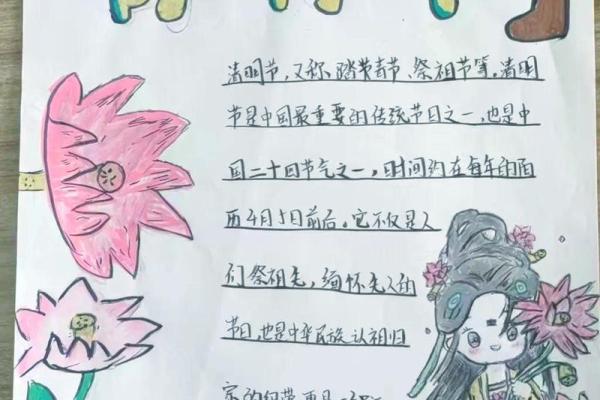 清明节，又称踏青节、祭祖节等，清明
节是中国最重要的传统节日之一，也是中
国二十四节气之一，时间约在每年的阳
历4月5日前后。它不仅是人
们祭祖先，缅怀先人的
节日，也是中华民族认祖归
宗的纽带，更是一